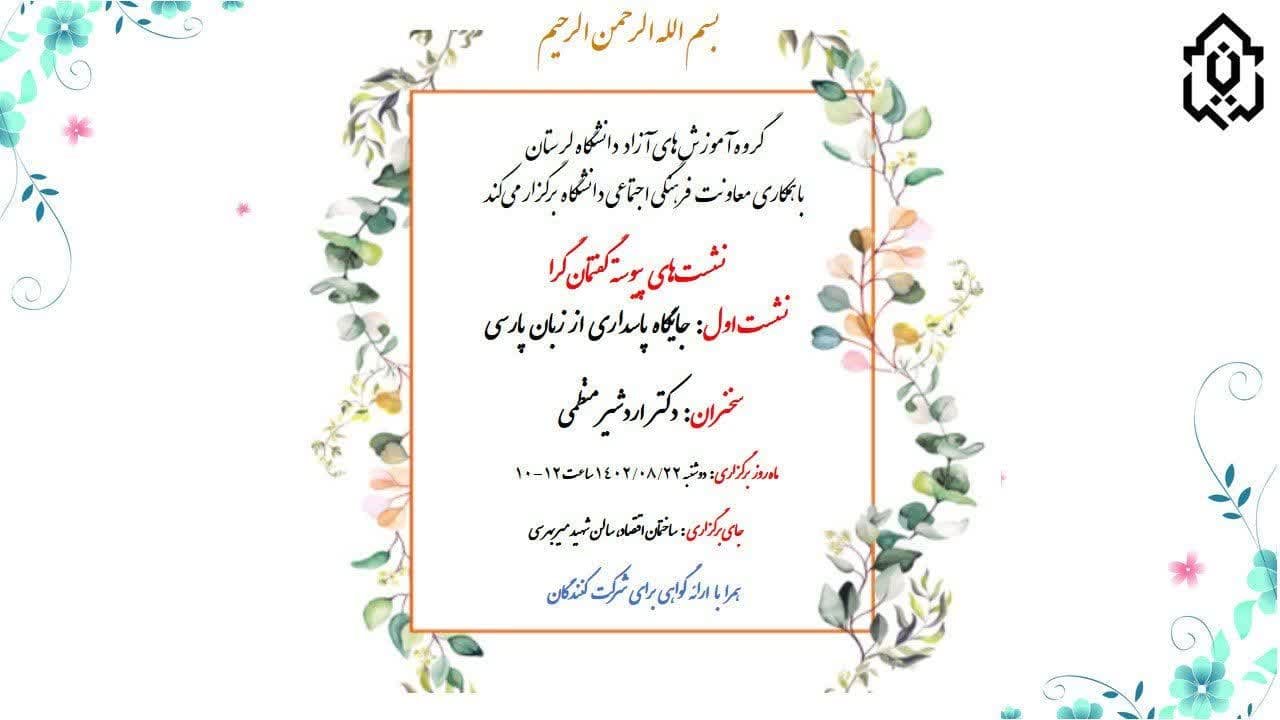 بسم الله الرحمن الرحیم
گروه آموزش‌های آزاد دانشگاه لرستان
با همکاری معاونت فرهنگی اجتماعی دانشگاه برگزار می‌کند
نشست‌های پیوسته گفتمان‌گرا
نشست اول: جایگاه پاسداری از زبان پارسی
سخنران: دکتر اردشیر منظمی
ماه روز برگزاری: دوشنبه ۱۴۰۲/۰۸/۲۲ ساعت ۱۲-۱۰
جای برگزاری: ساختمان اقتصاد، سالن شهید میربهری
همرا با ارائه گواهی برای شرکت کنندگان